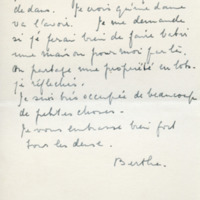 dedans. Je crois qu'une dame
va l'avoir. Je me demande
si je ferai bien de faire bâtir
une maison pour moi par là.
On partage une propriété en lots.
je réfléchis.
Je suis très occupée de beaucoup
de petites choses.
Je vous embrasse bien fort
tous les deux.
Berthe.